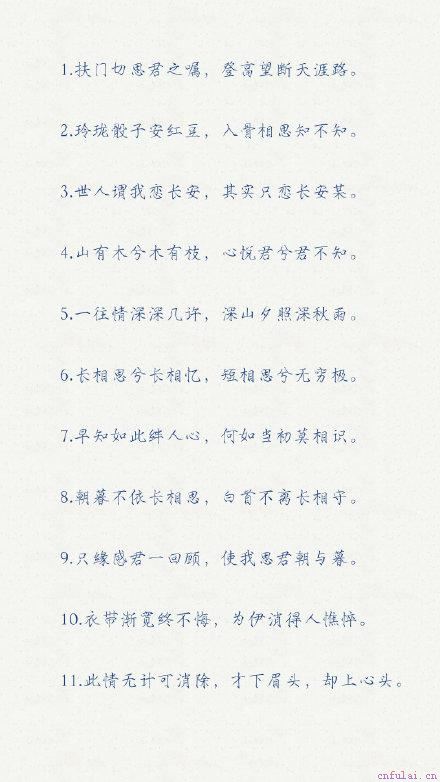 1.扶门切思君之嘱，登高望断天涯路。
2.玲珑骰子安红豆，入骨相思知不知。
3.世人谓我恋长安，其实只恋长安某。
4.山有木兮木有枝，心悦君兮君不知。
5.一往情深深几许，深山夕照深秋雨。
6.长相思兮长相忆，短相思兮无穷极。
7.早知如此绊人心，何如当初莫相识。
8.朝暮不依长相思，白首不离长相守。
9.只缘感君一回顾，使我思君朝与暮。
10.衣带渐宽终不悔，为伊消得人憔悴。
11.此情无计可消除，才下眉头，却上心头。
cnfulai.cn